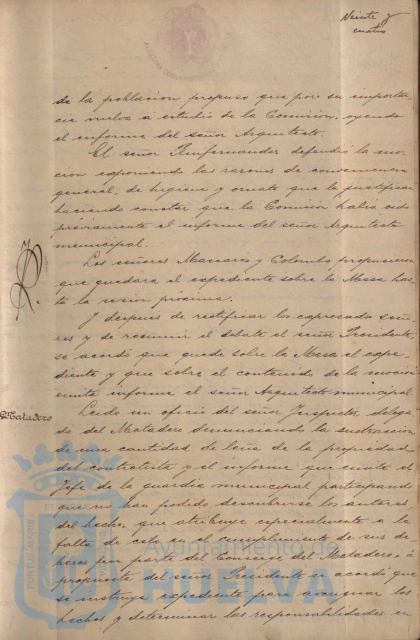 Veinte y
cuatro
de la poblacion propuso que por su importan
cia vuelva a estudio de la Comision, oyendo
el informe del señor Arquitecto.
El señor defendió la mo
cion exponiendo las razones de conveniencia
general, de higiene y ornato que la justifican
haciendo constar que la Comisión habia oido
préviamente el informe del señor Arquitecto
municipal.
Los señores y Colombo propusieron
que quedara el expediente sobre la Mesa has
ta la sesion próxima.
Y despues de rectificar los expresados seño
res y de resumir el debate el señor Presidente,
se acordó que quede sobre la Mesa el expe
diente y que sobre el contenido de la mocion
emita informe el señor Arquitecto municipal.
Matadero
Leido un oficio del señor Inspector delega
do del Matadero denunciando la sustraccion
de una cantidad de leña de la propiedad
del contratista y el informe que emite el
Jefe de la guardia municipal participando
que no han podido descubrirse los autores
del hecho, que atribuye especialmente a la
falta de celo en el cumplimiento de sus de
beres por parte del Conserje del Matadero, á
propuesta del señor Presidente se acordó que
se instruya expediente para averiguar los
hechos y determinar las responsabilidades en
Ayuntamiento
HUELVA